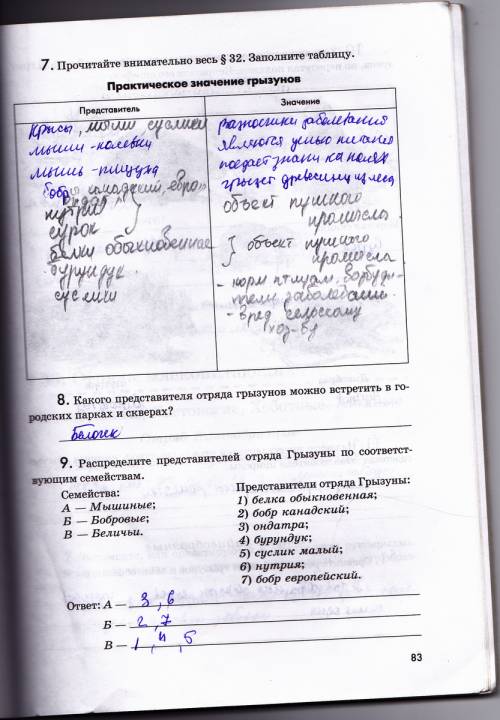 7. Прочитайте внимательно весь § 32. Заполните таблицу.
Практическое значение грызунов
Представитель
Значение
Крысы, мыши суслики
разносчики заболевания
мыши-полевки
являются цепью питания
мышь-пищуха
поедает злаки на полях
бобр канадский, евро
грызет древесину из леса
нутрия
объект пушного
промысла
сурок
белки обыкновенные
объект пушного
промысла
бурундук
суслики
- корм птицам, возбуди-
тели заболеваний
- вред сельскому
хоз-ву
8. Какого представителя отряда грызунов можно встретить в го-
родских парках и скверах?
белочек
9. Распределите представителей отряда Грызуны по соответст-
вующим семействам.
Семейства:
А — Мышиные;
Б — Бобровые;
В — Беличьи.
Представители отряда Грызуны:
1) белка обыкновенная;
2) бобр канадский;
3) ондатра;
4) бурундук;
5) суслик малый;
6) нутрия;
7) бобр европейский.
Ответ: А — 3, 6
Б — 2, 7
В — 1, 4, 5
83